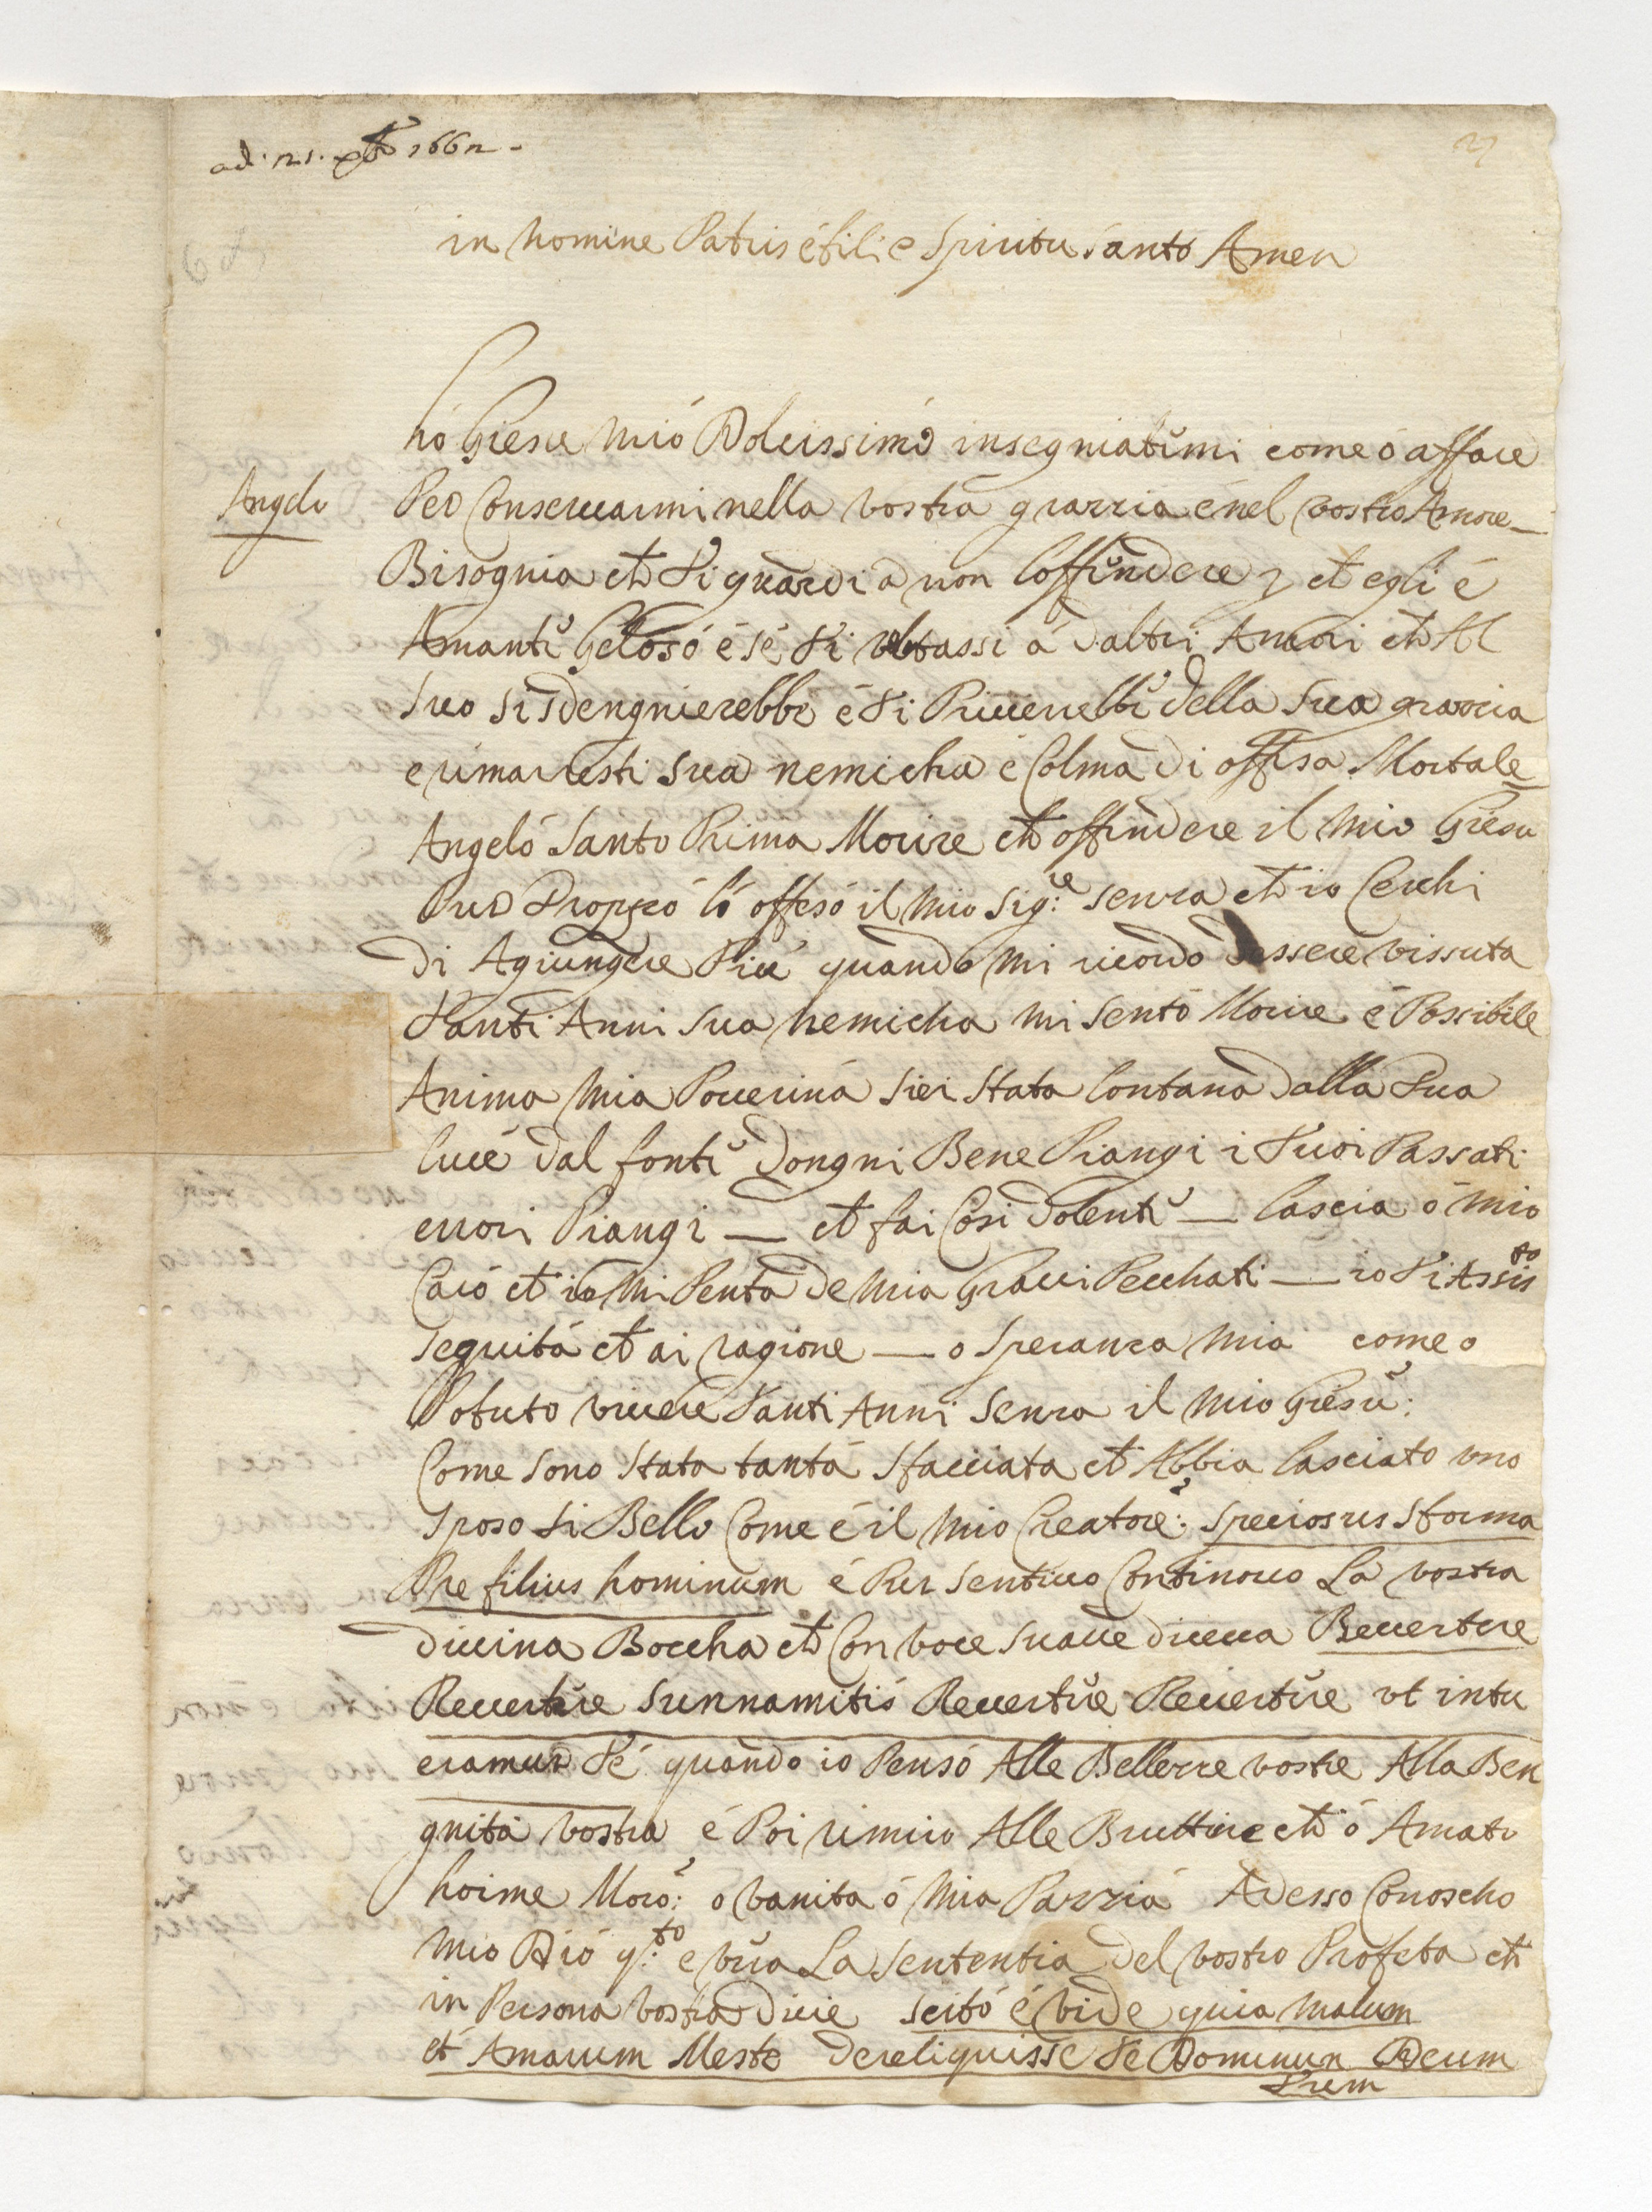 ad. 21. xbre 1662 -
in nomine Patris é fili e Spiritu santo Amen
hó Giesu mió Dolcissimo insegniatemi come ó affare
Angelo
Per Conseruarmi nella vostra grazzia é nel vostro Amore_
Bisognia che ti guardi a non l'offendere, che egli é
Amante Geloso é se ti voltassi á d'altri Amori che Al
suo si sdengnierebbe é ti Priuerebbe della sua grazzia
e rimarresti sua nemicha e Colma di offesa Mortale
Angeló Santo Prima Morire che offendere il mio Giesu
Pur Troppo ló offesó il mio Sig:re senza che io Cerchi
di Agiungere Piú quando mi ricordo d'essere vissuta
Tanti Anni sua nemicha mi sento Morire é Possibile
Anima mia Pouerina siei stata lontana dalla tua
luce dal fonte dongni Bene Piangi i tuoi Passati
errori Piangi — che fai Cosi dolente — lascia ó mio
Caro che io mi Penta de mia Graui Pecchati — io ti Assisto
seguita che ai ragione — o speranza mia come o
Potuto viuere Tanti Anni senza il mio Giesu:
Come sono stata tanta sfacciata che Abbia lasciato vno
sposo si Bello Come é il mio Creatore: speciosus sforma
Pre filius hominum é Pur sentiuo Continouo La vostra
diuina Boccha che Con voce suaue diceua Reuertere
Reuertere sunnamitis Reuertere Reuertere vt intu
eramur Te quando io Pensó Alle Bellezze vostre Alla Ben
gnita vostra é Poi rimiro Alle Brutture che ó Amato
hoime Moro: o vanita ó mia Pazzia Adesso Conoscho
mio Dió q:to e vera La sententia del vostro Profeta che
in Persona vostra dicie scitó é vide quia malum
et Amarum Meste dereliquisse Te Dominum Deum
Tuum